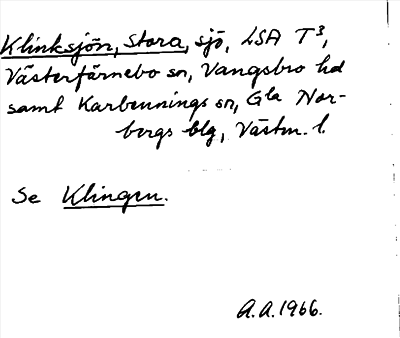 Klinksjön, Stora, sjö, LSA T³,
Västerfärnebo sn, Vangsbro hd
samt Karbennings sn, Gla Nor-
bergs blg, Västm. l.
Se Klingen.
A.A. 1966.